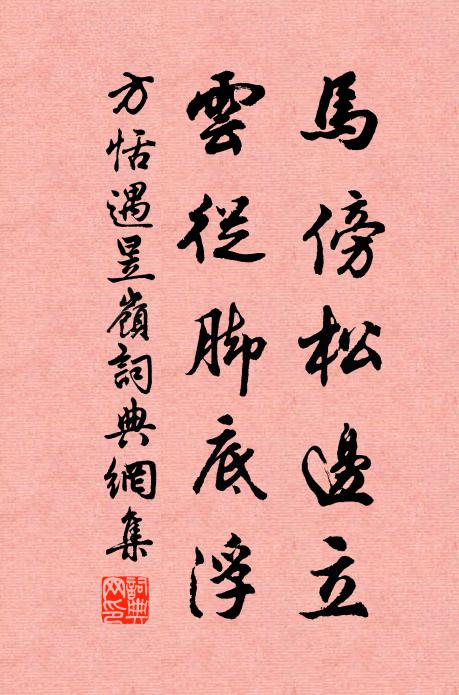 馬傍松邊立
雲從脚底浮
方恬遇昱嶺詞典網集
詞典網印